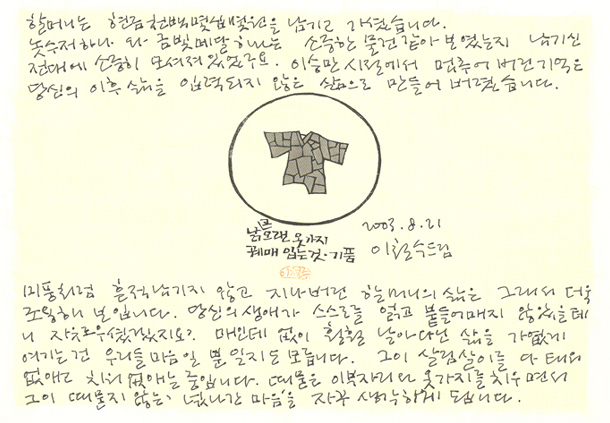 할머니는 현금 천백몇십몇원을 남기고 가셨습니다.
놋수저 하나와 금빛메달 하나는 소중한 물건 같아 보였는지 남기신
전대에 소중히 모셔져 있었구요. 이승만 시절에서 멈추어 버린 기억은
당신의 이후 삶을 입력되지 않은 삶으로 만들어 버렸습니다.
낡은 오랜 옷가지
꿰매 입는 것. 기품
2003. 8. 21
이철수드림
미풍처럼 흔적 남기지 않고 지나버린 할머니의 삶은 그래서 더욱
조용해 보입니다. 당신의 생애가 스스로를 얽고 붙들어매지 않았을테
니 자유로우셨겠지요? 매인데 없이 훨훨 날아다닌 삶을 가엾게
여기는건 우리들 마음일 뿐일지도 모릅니다. 그이 살림살이들 다 태워
없애고 치워 없애는 중입니다. 때묻은 이부자리와 옷가지들 치우면서
그이 때묻지 않은, 넋나간 마음을 자꾸 생각하게 됩니다.